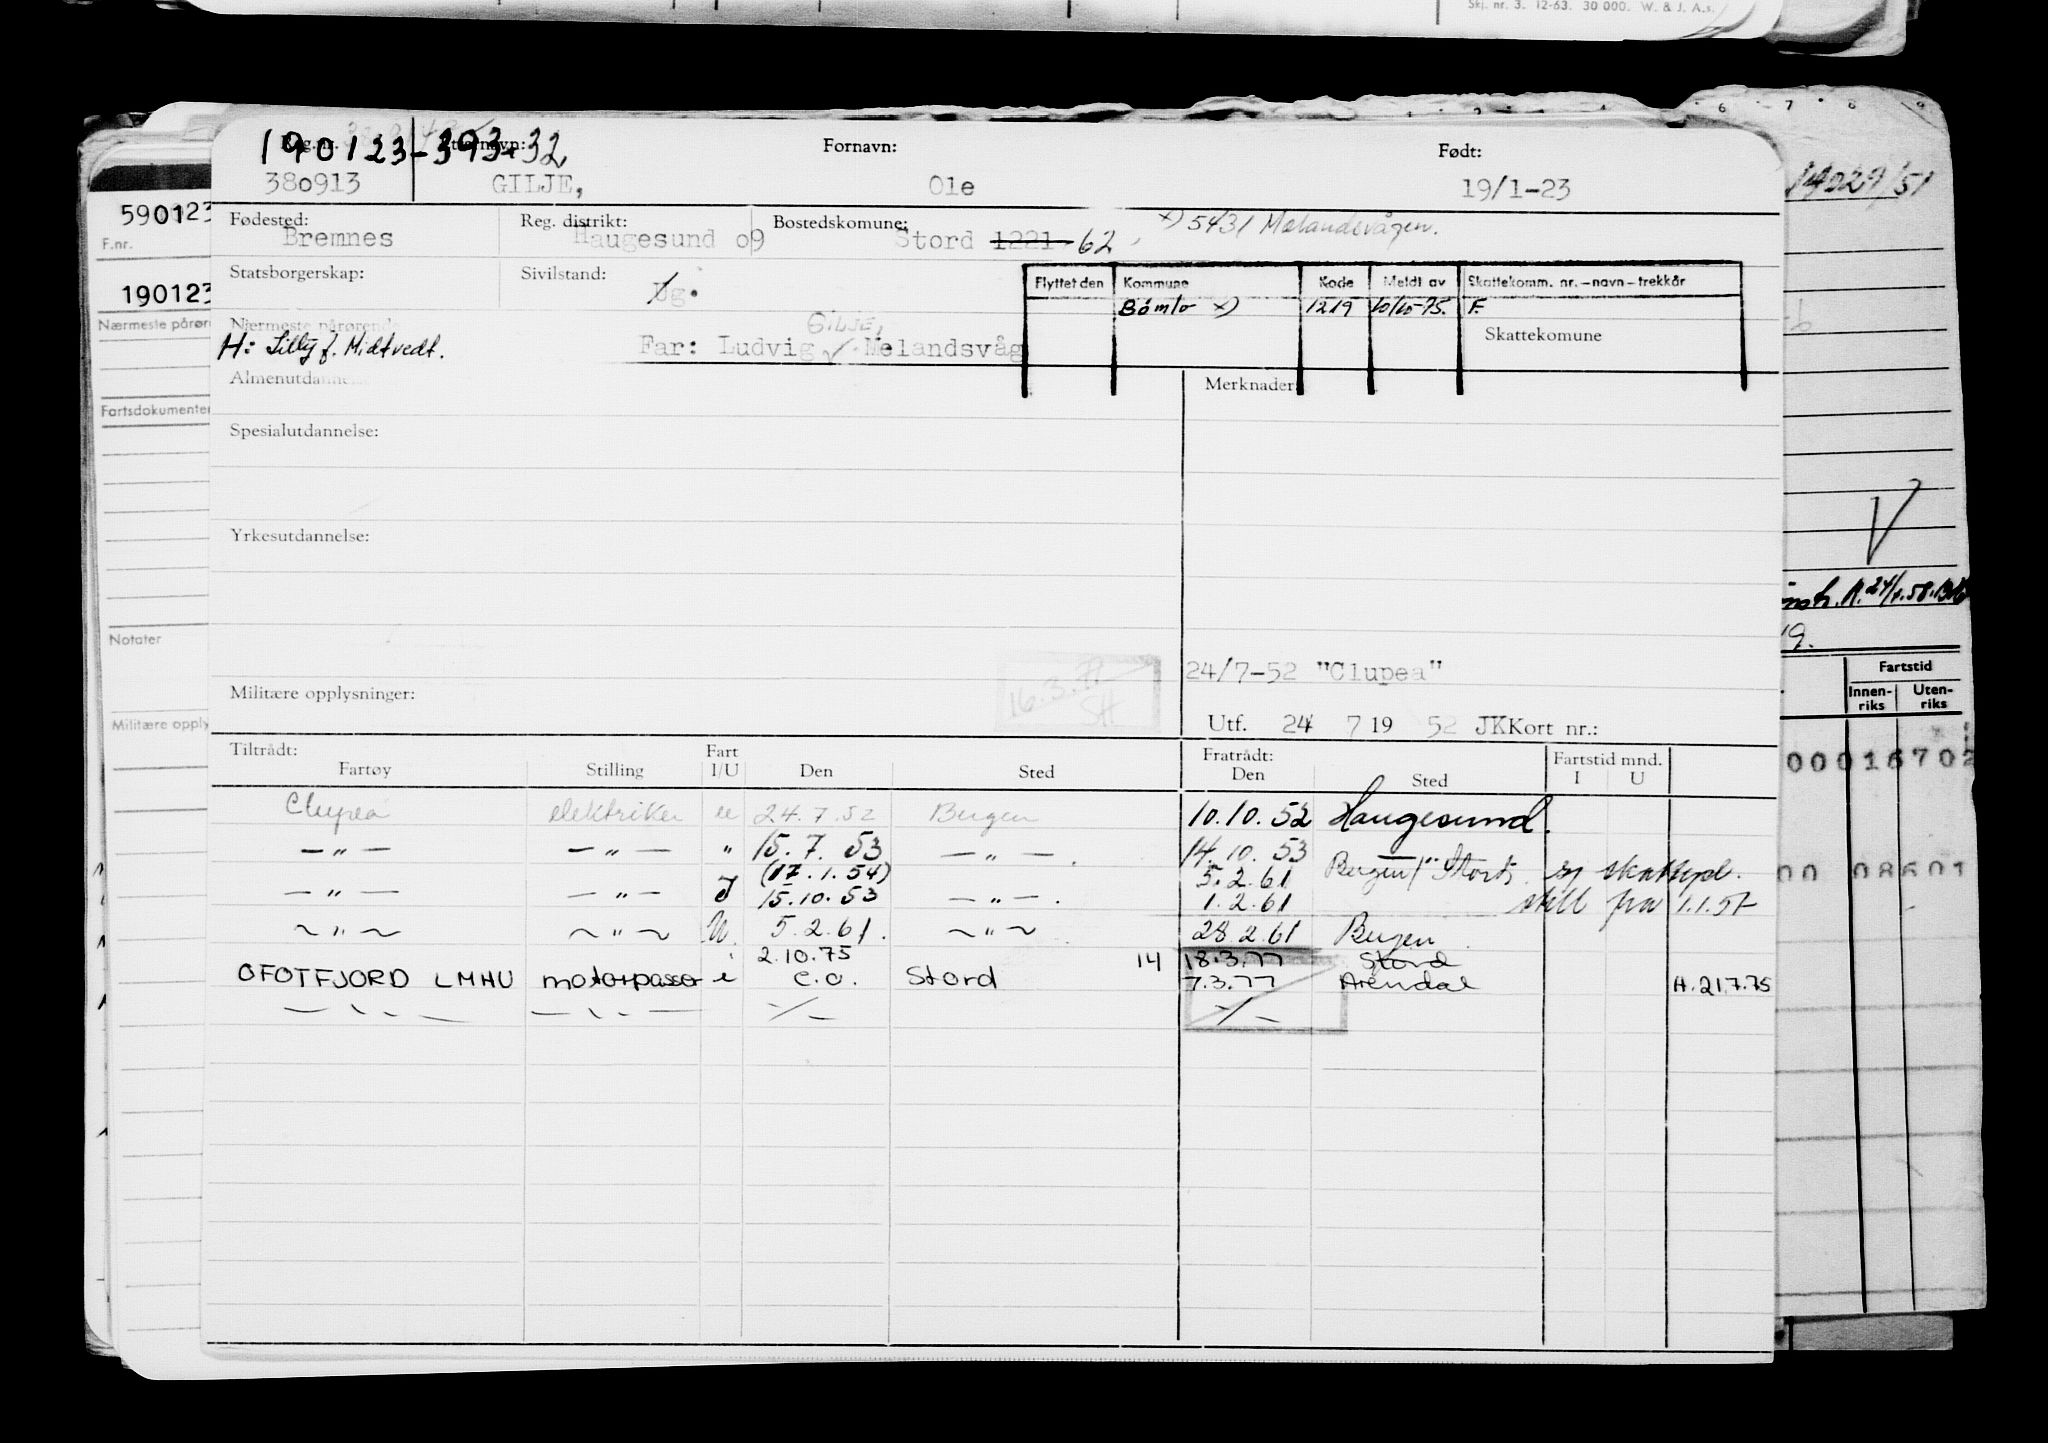 Skj. nr. 3. 12-63. 30 000. W. & J. A.s.
190123-393.32
Reg.nr. Etternavn: Fornavn: Født:
380913 GILJE, Ole 19/1-23
Fødested: Reg. distrikt: Bostedskomune: x) 5431 Melandsvågen.
Bremnes Haugesund 09 Stord 1221 62
Statsborgerskap: Sivilstand: Ug.
Flyttet den Kommune Kode Meldt av Skattekomm. nr. – navn – trekkår
Bømlo x) 1219 10/10-75. F.
Skattekomune
Nærmeste pårørende
GILJE,
H: Lilly f. Midtvedt. Far: Ludvig Melandsvåg
Almenutdannelse Merknader:
Spesialutdannelse:
Yrkesutdannelse:
24/7-52 "Clupea"
Militære opplysninger: 16.3.77 SH
Utf. 24 7 19 52 JK Kort nr.:
Tiltrådt: Fart Fratrådt: Fartstid mnd.
Fartøy Stilling I/U Den Sted Den Sted I U
Clupea elektriker u 24.7.52 Bergen 10.10.52 Haugesund.
— " — — " — " 15.7.53 — " — . 14.10.53
(17.1.54) 5.2.61 Bergen Stord
— " — — " — I 15.10.53 — " — . 1.2.61 still fra 1.1.57
~ " ~ ~ " ~ U. 5.2.61. ~ " ~ 28.2.61 Bergen
2.10.75 14 18.3.77 Stord
OFOTFJORD LMHU motorpasser i C.O. Stord 7.3.77 Arendal A.217.75
590123
F.nr.
190123
Nærmeste pårør
Fartsdokumenter
Notater
Militære opply
14029/51
19.
Fartstid
Innen-riks Uten-riks
00016702
00 08601